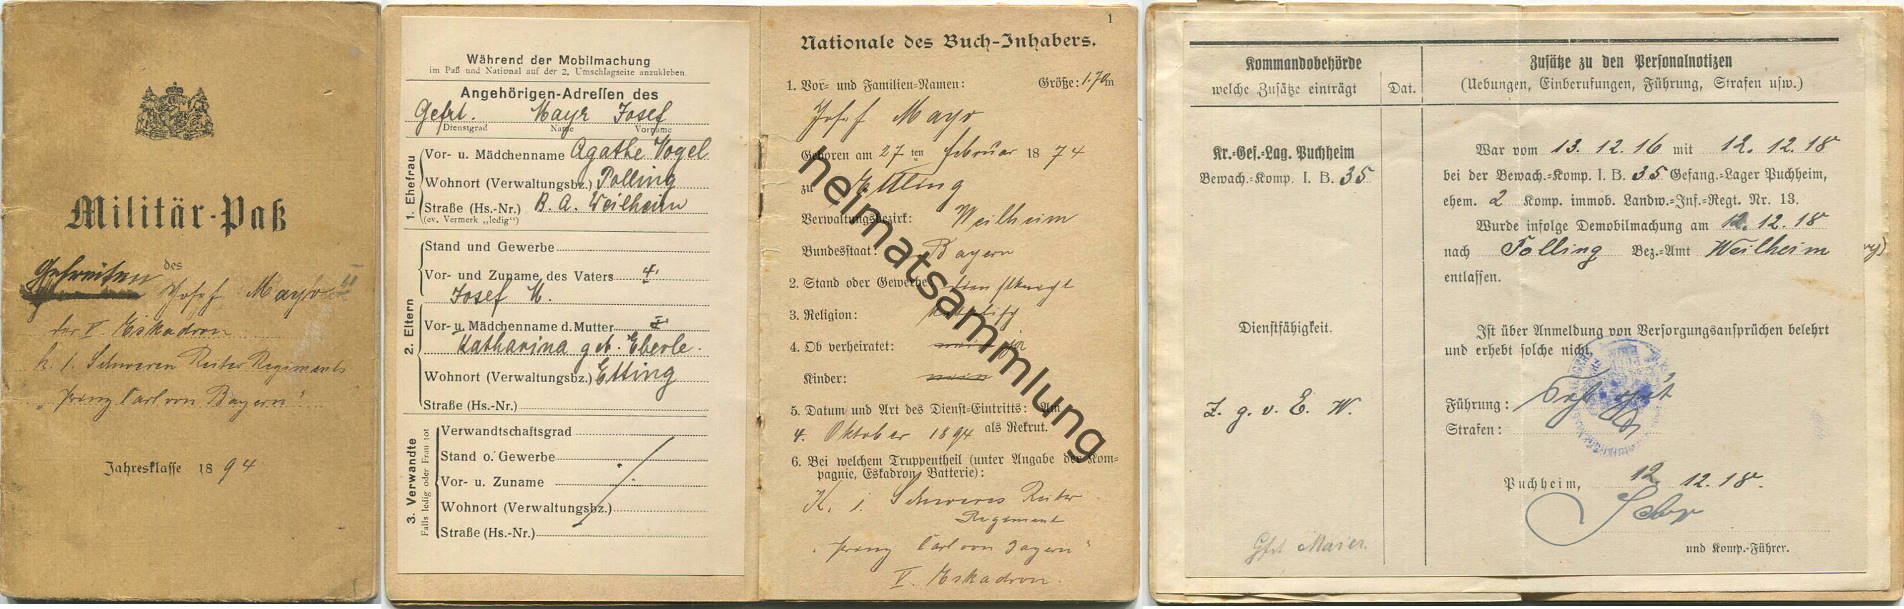 Militär-Paß
des
Gefreiten Josef Mayr II
der V. Eskadron
K. 1. Schweren Reiter Regiments
"Prinz Carl von Bayern"
Jahresklasse 1894
Während der Mobilmachung
im Paß und National auf der 2. Umschlagseite anzukleben
Angehörigen-Adressen des
Gefrt. Mayr Josef
Dienstgrad Name Vorname
1. Ehefrau
Vor- u. Mädchenname Agathe Vogel
Wohnort (Verwaltungsbz.) Polling
Straße (Hs.-Nr.) B. A. Weilheim
(ev. Vermerk „ledig")
2. Eltern
Stand und Gewerbe
Vor- und Zuname des Vaters
Josef M.
Vor- u. Mädchenname d. Mutter
Katharina geb. Eberle.
Wohnort (Verwaltungsbz.) Etting
Straße (Hs.-Nr.)
3. Verwandte
Falls ledig oder Frau tot
Verwandtschaftsgrad
Stand o. Gewerbe
Vor- u. Zuname
Wohnort (Verwaltungsbz.)
Straße (Hs.-Nr.)
1
Nationale des Buch-Inhabers.
1. Vor- und Familien-Namen: Größe: 1.70 m
Josef Mayr
Geboren am 27ten Februar 1874
zu Ettling
Verwaltungsbezirk: Weilheim
Bundesstaat: Bayern
2. Stand oder Gewerbe:
3. Religion: katholisch
4. Ob verheiratet: nein
Kinder: nein
5. Datum und Art des Dienst-Eintritts: Am
4. Oktober 1894 als Rekrut.
6. Bei welchem Truppentheil (unter Angabe der Kom-
pagnie, Eskadron, Batterie):
K. 1. Schweres Reiter
Regiment
"Prinz Carl von Bayern"
V. Eskadron.
heimatsammlung
Kommandobehörde
welche Zusätze einträgt
Dat.
Zusätze zu den Personalnotizen
(Uebungen, Einberufungen, Führung, Strafen usw.)
Kr.-Gef.-Lag. Puchheim
Bewach.-Komp. I. B. 35
War vom 13. 12. 16 mit 12. 12. 18
bei der Bewach.-Komp. I. B. 35 Gefang.-Lager Puchheim,
ehem. 2 Komp. immob. Landw.-Inf.-Regt. Nr. 13.
Wurde infolge Demobilmachung am 12. 12. 18
nach Polling Bez.-Amt Weilheim
entlassen.
Dienstfähigkeit.
Ist über Anmeldung von Versorgungsansprüchen belehrt
und erhebt solche nicht.
Z. g. v. E. W.
Führung: Sehr gut
Strafen:
Puchheim, 12. 12. 18.
Gfrt Maier.
und Komp.-Führer.